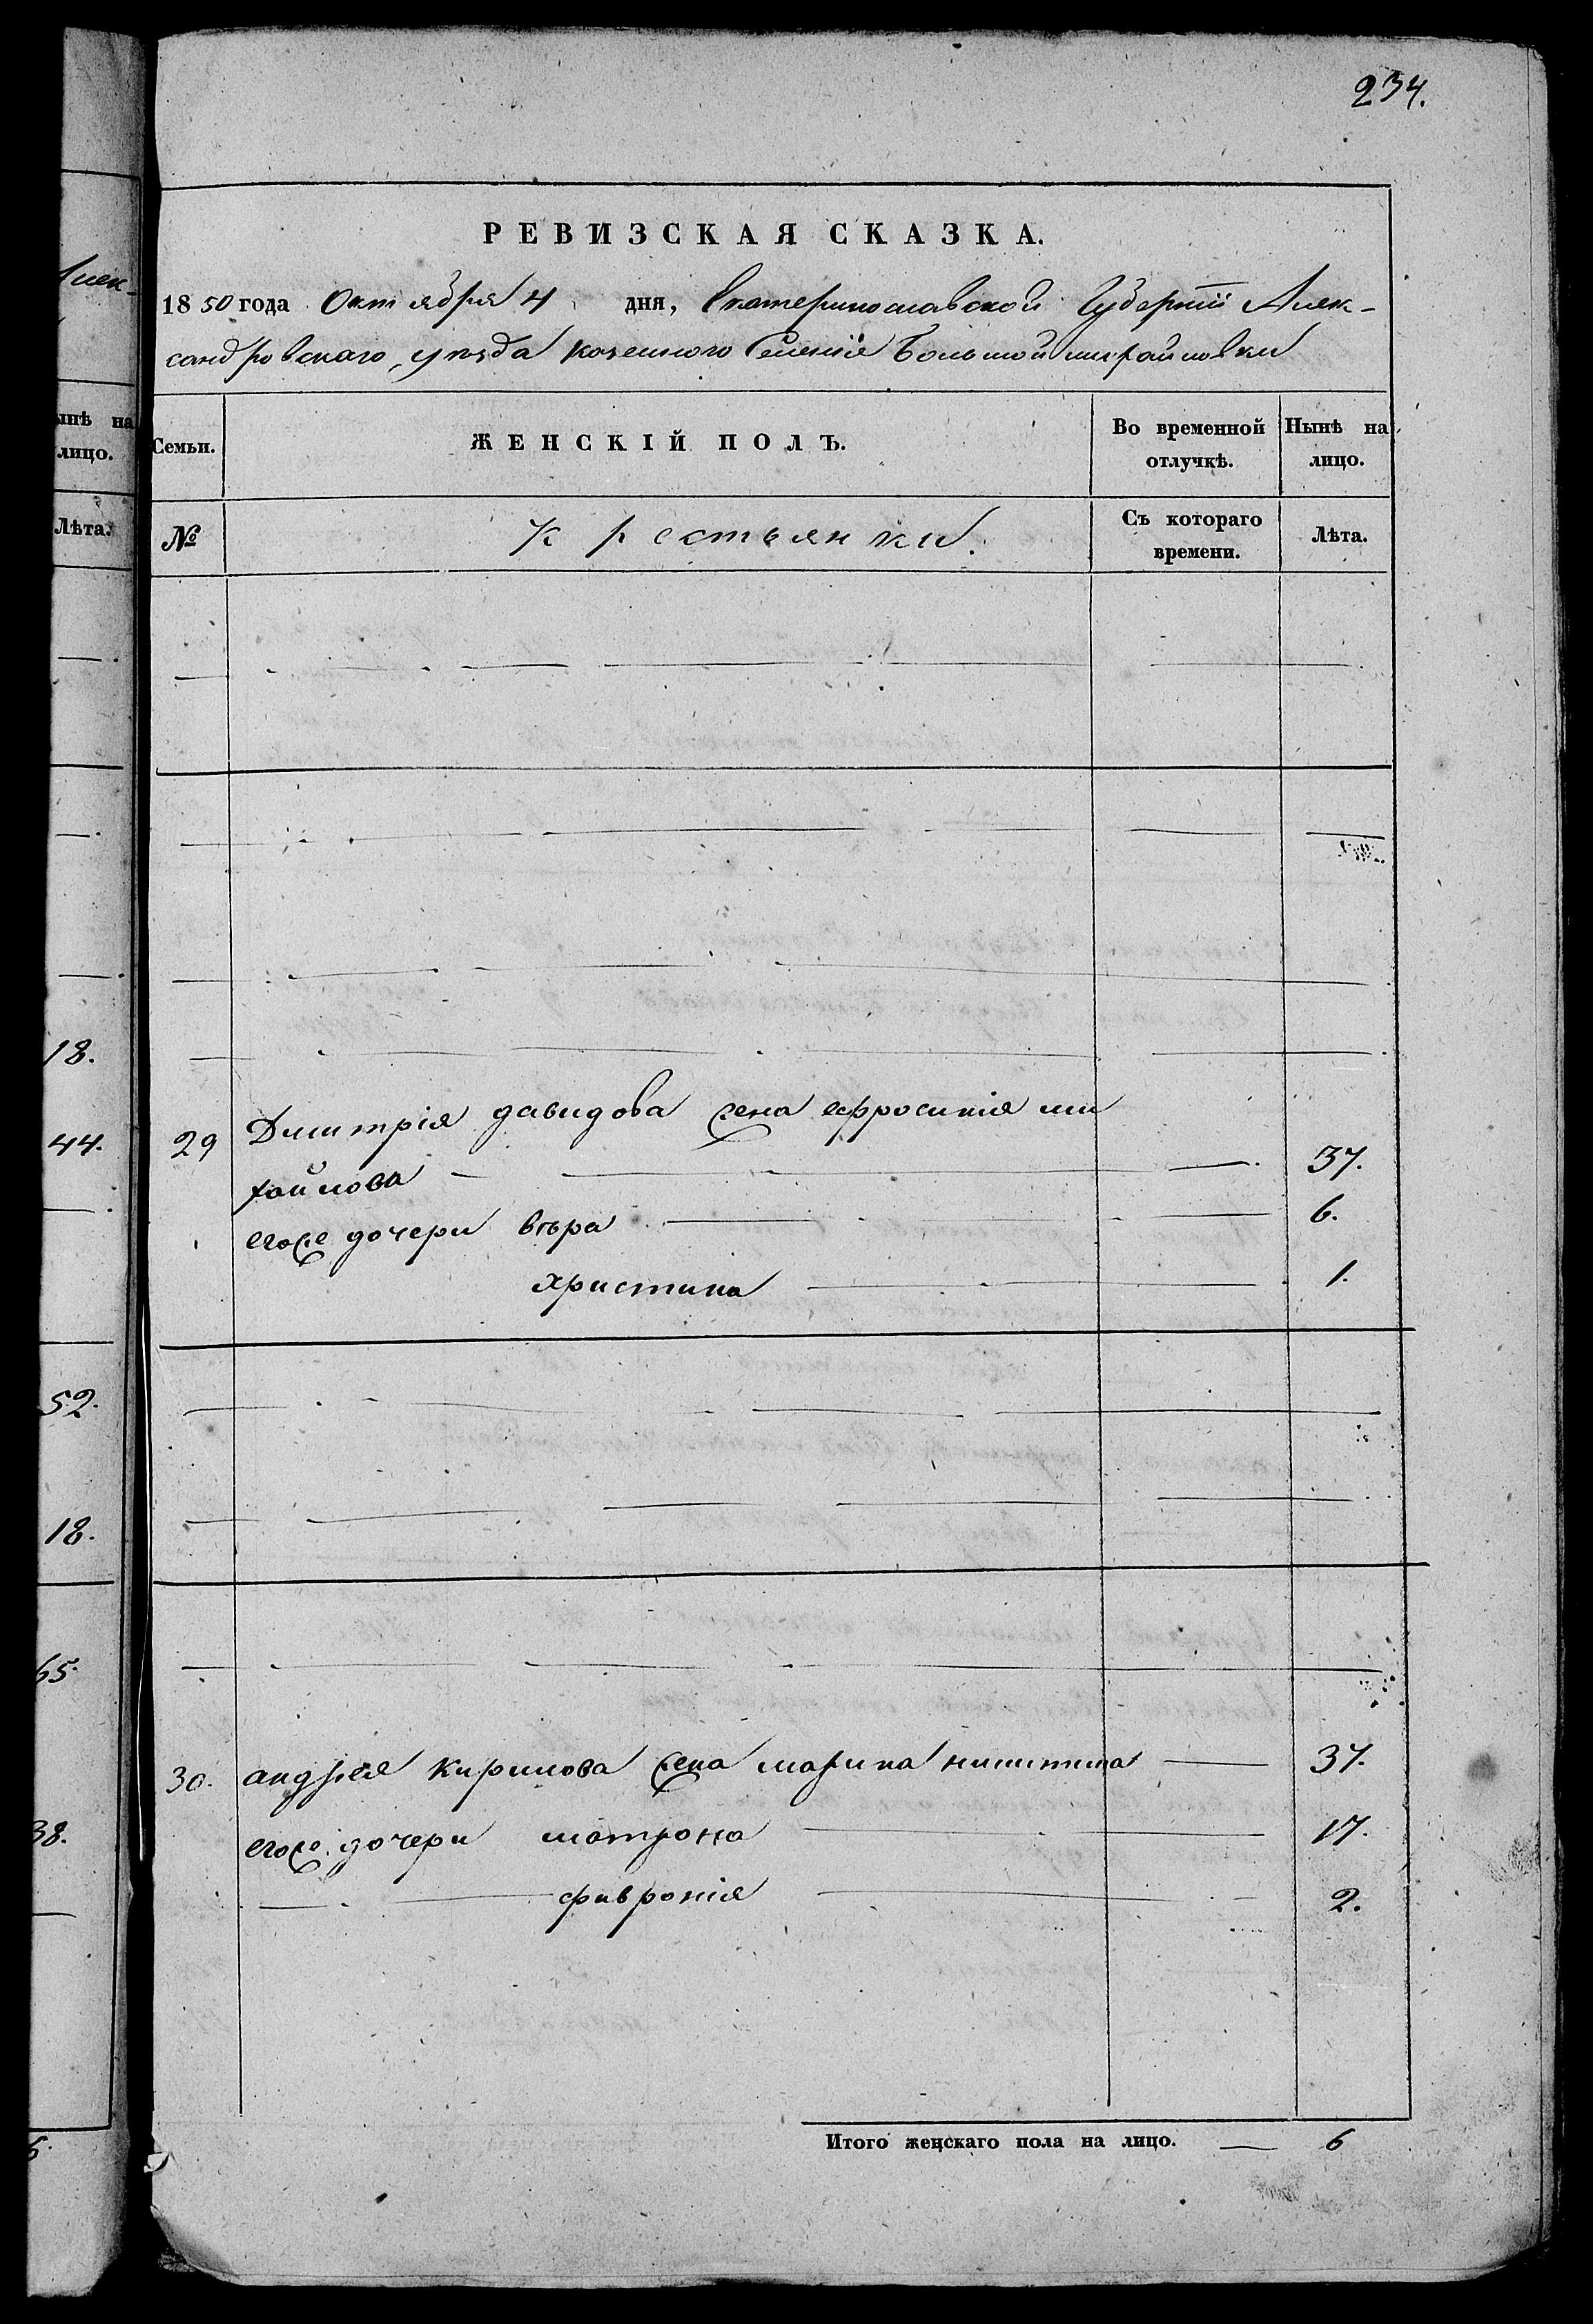 234.
РЕВИЗСКАЯ СКАЗКА.
1850 года Октября 4 дня, Екатеринославской Губернїи Алек-
сандровскаго, уѣзда казенного Селенїя Большой михайловки
Семьи. ЖЕНСКІЙ ПОЛЪ. Во временной отлучкѣ. Нынѣ на лицо.
№ Крестьянки. Съ котораго времени. Лѣта.
29 Дмитрія давидова жена ефросинія ми
хайлова 37.
егоже дочери вѣра 6.
христина 1.
30. андрея Кирилова жена марина никитина 37.
егоже дочери матрона 17.
фивронія 2.
Итого женскаго пола на лицо. 6
Алек-
ынѣ на
лицо.
Лѣта.
18.
44.
52.
18.
65.
38.